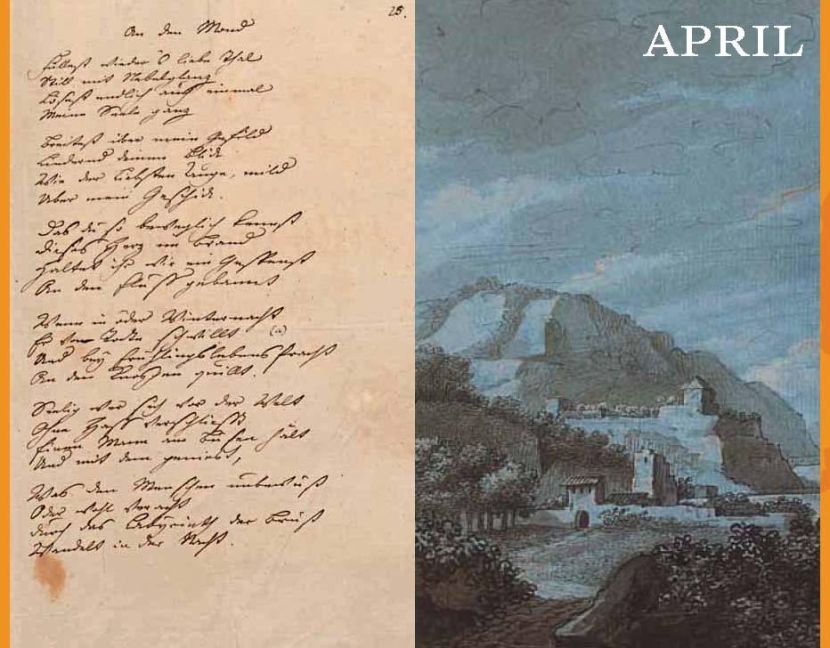 28.
An den Mond
Füllest wieder 's liebe Thal
Still mit Nebelglanz
Lösest endlich auch einmal
Meine Seele ganz
Breitest über mein Gefild
Lindernd deinen Blick
Wie der Liebsten Auge, mild
Uber mein Geschick.
Das du so beweglich kennst
Dieses Herz im Brand
Haltet ihr wie ein Gespenst
An den Fluß gebannt
Wenn in öder Winternacht
Er vom Todte schwillt (a)
Und bey Frühlingslebens Pracht
An den Knospen quillt.
Seelig wer sich vor der Welt
Ohne Haß verschließt
Einen Mann am Busen hält
Und mit dem genießt,
Was den Menschen unbewußt
Oder wohl veracht
Durch das Labyrinth der Brust
Wandelt in der Nacht.
APRIL